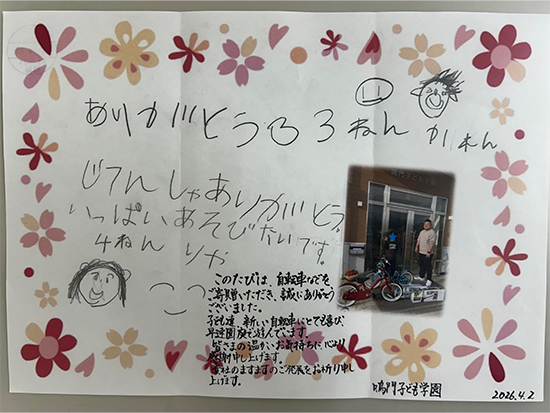 ありがとう 3ねん かれん
じてんしゃありがとう。
いっぱいあそびたいです。
4ねん りか
このたびは、自転車などを
ご寄贈いただき、誠にありがとう
ございました。
子ども達、新しい自転車にとても喜び、
早速園庭で遊んでいます。
皆さまの温かいお気持ちに心より
感謝申し上げます。
貴社のますますのご発展をお祈り申し
上げます。
鳴門子ども学園
2026.4.2